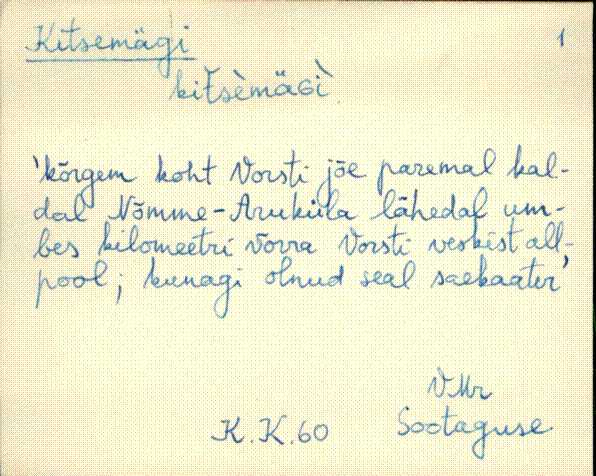 Kitsemägi 1
kiťsèmäGì
'kõrgem koht Vorsti jõe paremal kal-
dal Nõmme-Aruküla lähedal um-
bes kilomeetri võrra Vorsti veskist all-
pool; kunagi olnud seal saekaater'
VMr
K.K.60 Sootaguse